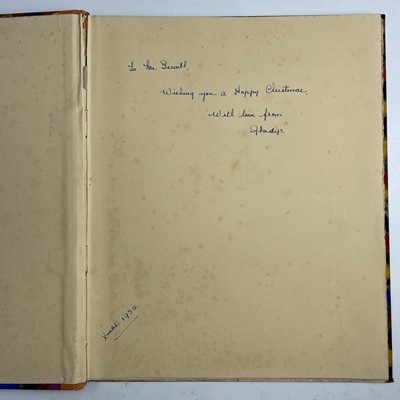 To
Wishing you a Happy Christmas.
With love from
Gladys
Xmas 193